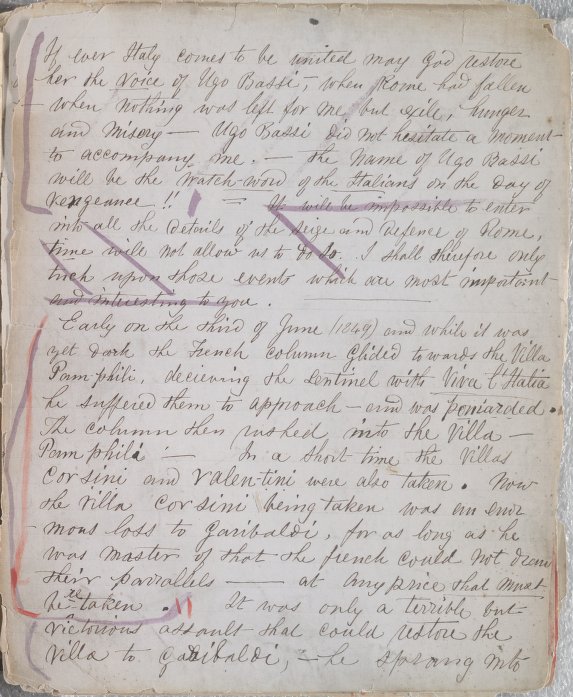 If ever Italy comes to be united may God restore
her the Voice of Ugo Bassi, when Rome had fallen
— when nothing was left for me but exile, hunger
and Misery — Ugo Bassi did not hesitate a moment
to accompany me. — the Name of Ugo Bassi
will be the watch-word of the Italians on the day of
Vengeance !! = It will be impossible to enter
into all the details of the seige and defence of Rome,
time will not allow us to do so. I shall therefore only
tuch upon those events which are most important
and interesting to you.
Early on the third of June (1849) and while it was
yet dark the French column glided towards the Villa
Pamphili, decieving the sentinel with Viva l'Italia
he suffered them to approach — and was poniarded.
The column then rushed into the Villa —
Pamphili — In a short time the Villas
Corsini and Valentini were also taken. Now
the Villa Corsini being taken was an enor
mous loss to Garibaldi, for as long as he
was master of that the french could not draw
their parralels — at any price that must
be re taken. " It was only a terrible but
victorious assault that could restore the
Villa to Garibaldi, — he sprang into